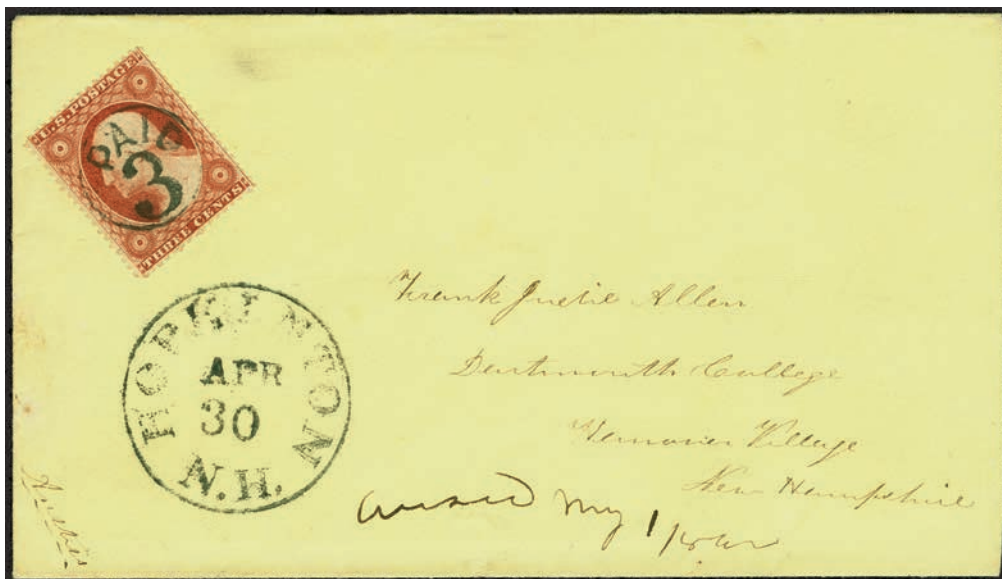 U.S. POSTAGE
PAID
3
THREE CENTS
HOPKINTON
APR
30
N.H.
Frank Allen
Dartmouth College
Village
New Hampshire
My 1